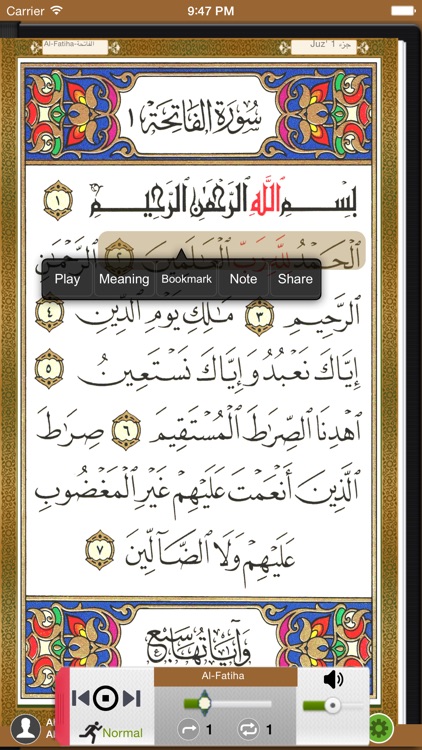 Carrier 9:47 PM
Al-Fatiha-الفاتحة Juz' 1 جزء
سُورَةُ الفَاتِحَةِ ١
بِسْمِ ٱللَّهِ ٱلرَّحْمَٰنِ ٱلرَّحِيمِ ١
ٱلْحَمْدُ لِلَّهِ رَبِّ ٱلْعَالَمِينَ ٢ ٱلرَّحْمَٰنِ
Play Meaning Bookmark Note Share
ٱلرَّحِيمِ ٣ مَالِكِ يَوْمِ ٱلدِّينِ ٤
إِيَّاكَ نَعْبُدُ وَإِيَّاكَ نَسْتَعِينُ ٥
ٱهْدِنَا ٱلصِّرَاطَ ٱلْمُسْتَقِيمَ ٦ صِرَاطَ
ٱلَّذِينَ أَنْعَمْتَ عَلَيْهِمْ غَيْرِ ٱلْمَغْضُوبِ
عَلَيْهِمْ وَلَا ٱلضَّآلِّينَ ٧
وَآيَاتُهَا سَبْعٌ
Al-Fatiha
Normal 1 1